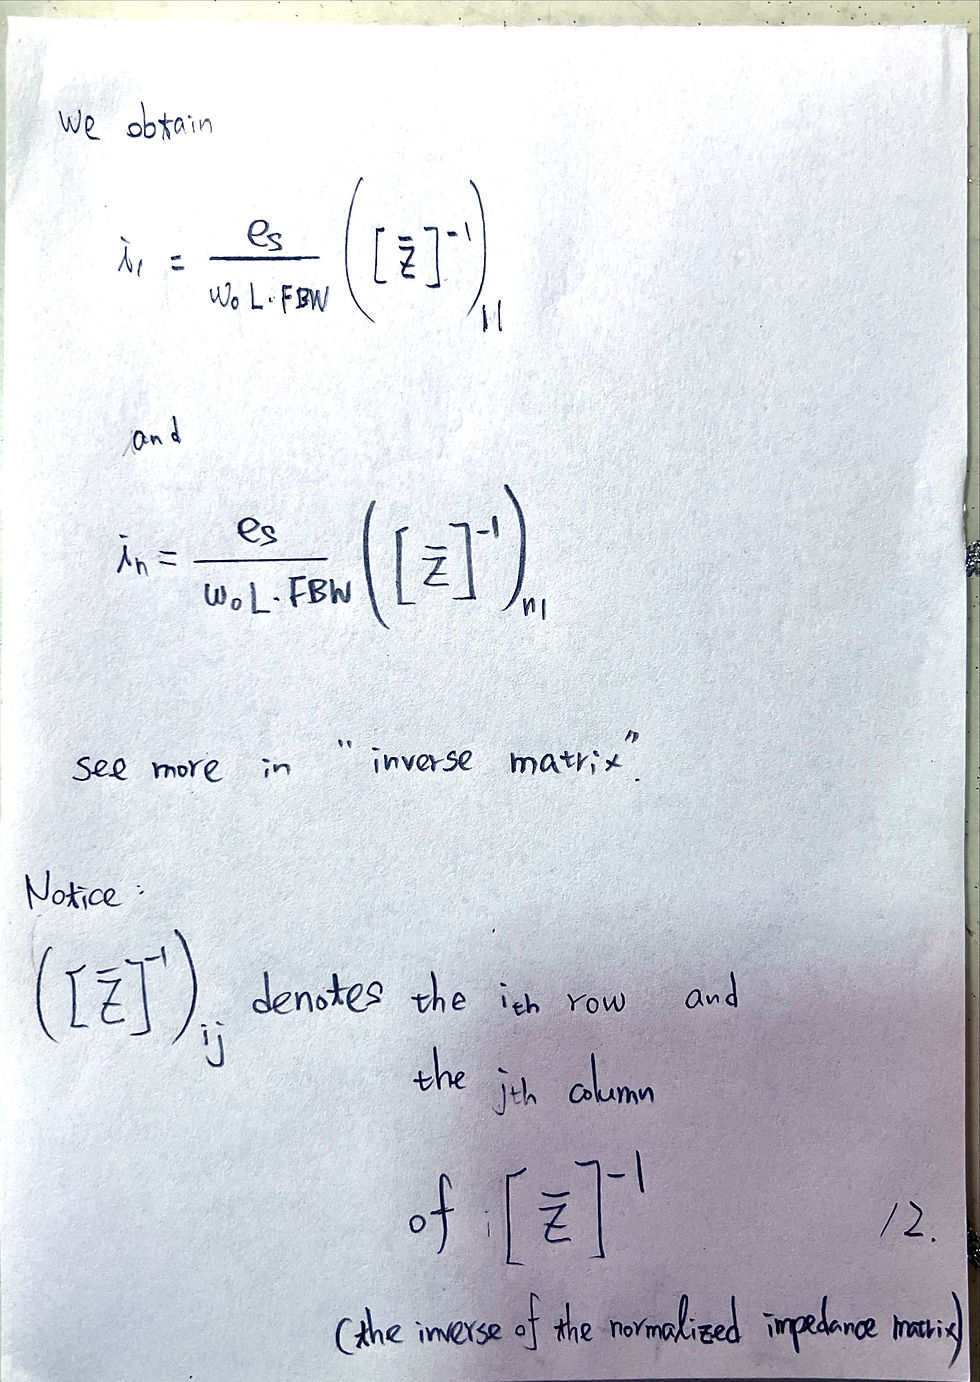 we obtain
i₁ = es / (w₀ L · FBW) ([z̄]⁻¹)₁₁
and
iₙ = es / (w₀ L · FBW) ([z̄]⁻¹)ₙ₁
see more in "inverse matrix".
Notice :
([z̄]⁻¹)ij denotes the ith row and
the jth column
of [z̄]⁻¹
12.
(the inverse of the normalized impedance matrix)